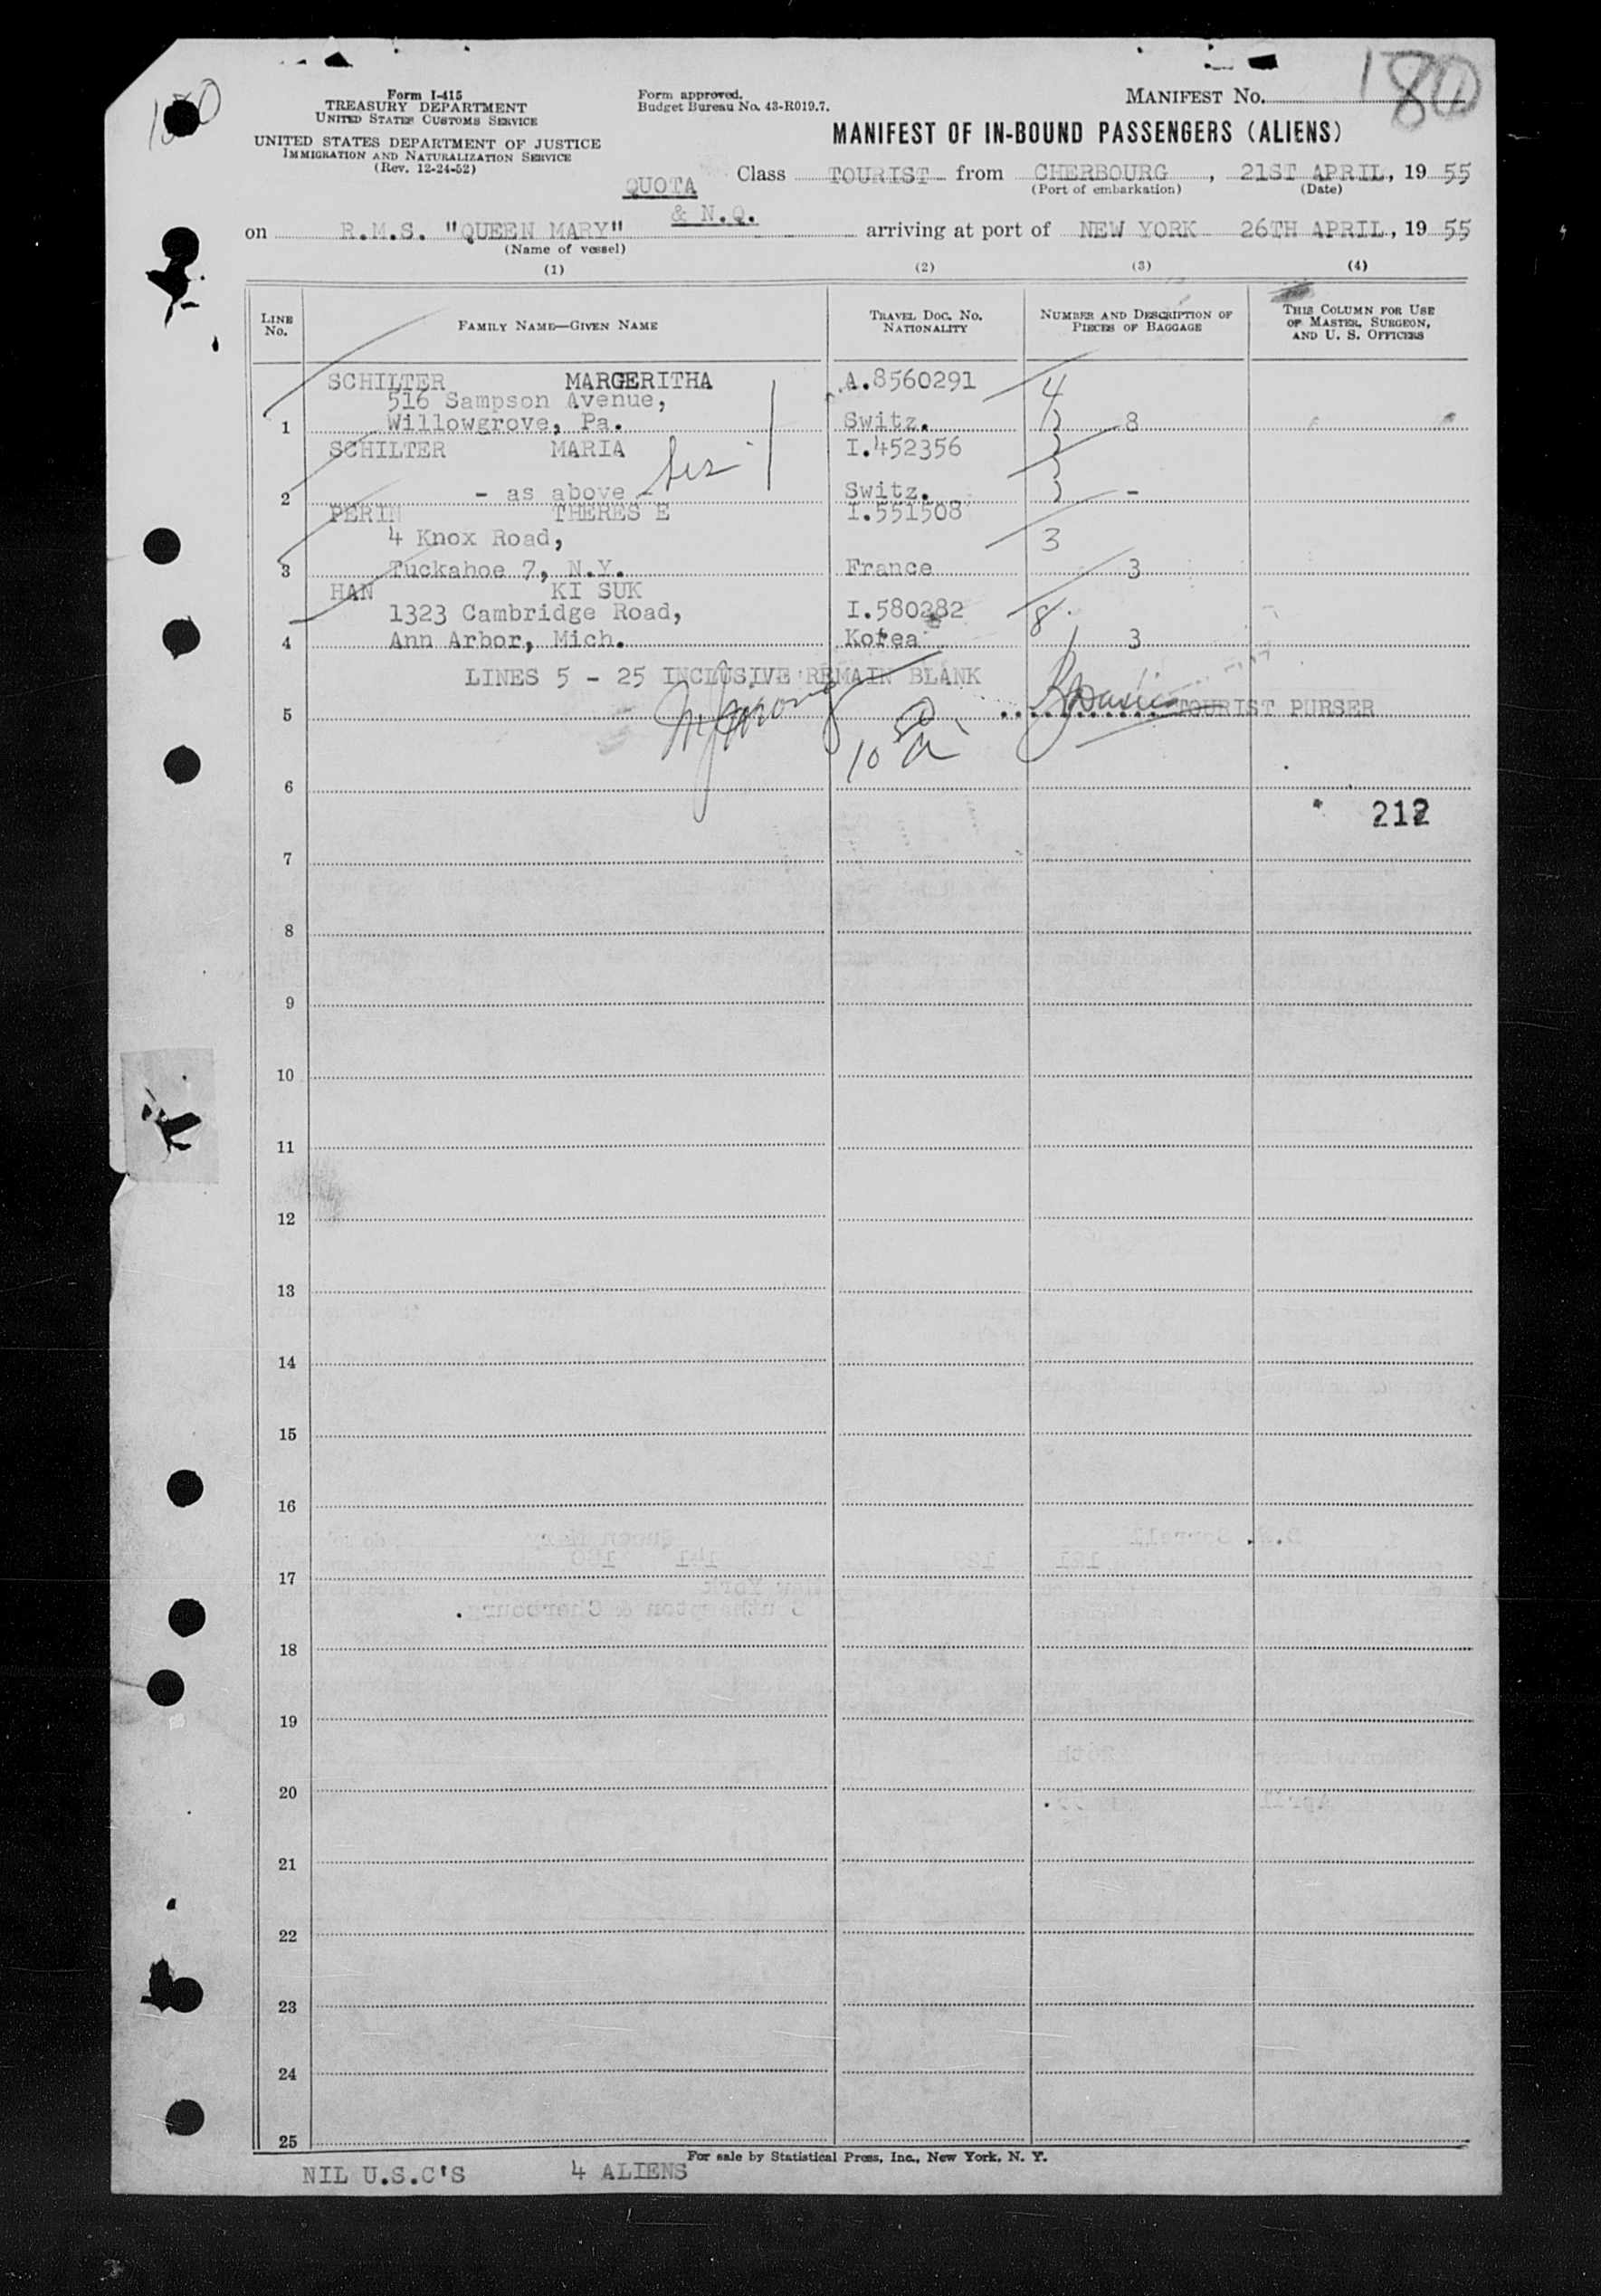 180
180
Form I-415
TREASURY DEPARTMENT
UNITED STATES CUSTOMS SERVICE
UNITED STATES DEPARTMENT OF JUSTICE
IMMIGRATION AND NATURALIZATION SERVICE
(Rev. 12-24-52)
Form approved.
Budget Bureau No. 43-R019.7.
MANIFEST No.
MANIFEST OF IN-BOUND PASSENGERS (ALIENS)
QUOTA
& N.Q.
Class TOURIST from CHERBOURG, 21ST APRIL, 19 55
(Port of embarkation) (Date)
on R.M.S. "QUEEN MARY" arriving at port of NEW YORK 26TH APRIL, 19 55
(Name of vessel)
(1) (2) (3) (4)
LINE No. FAMILY NAME—GIVEN NAME TRAVEL DOC. NO. NATIONALITY NUMBER AND DESCRIPTION OF PIECES OF BAGGAGE THIS COLUMN FOR USE OF MASTER, SURGEON, AND U. S. OFFICERS
SCHILTER MARGERITHA A.8560291 4
516 Sampson Avenue,
1 Willowgrove, Pa. Switz. ) 8
SCHILTER MARIA I.452356 )
2 - as above - Switz. ) -
PERIN THERES E I.551508
4 Knox Road, 3
3 Tuckahoe 7, N.Y. France 3
HAN KI SUK
1323 Cambridge Road, I.580282 8
4 Ann Arbor, Mich. Korea 3
LINES 5 - 25 INCLUSIVE REMAIN BLANK
5 TOURIST PURSER
10
6
212
7
8
9
10
11
12
13
14
15
16
17
18
19
20
21
22
23
24
25
For sale by Statistical Press, Inc., New York, N. Y.
NIL U.S.C'S 4 ALIENS